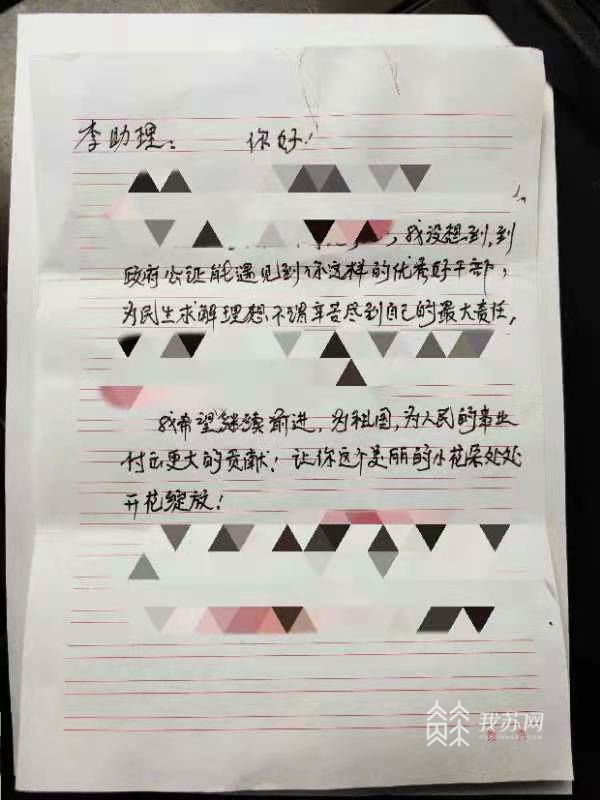 李助理： 你好！
，我没想到，到
政府公证能遇见到你这样的优秀好干部，
为民生求解理想不谓辛苦尽到自己的最大责任，
我希望继续前进，为祖国，为人民的事业
付出更大的贡献！让你这个美丽的小花朵处处
开花绽放！
我苏网